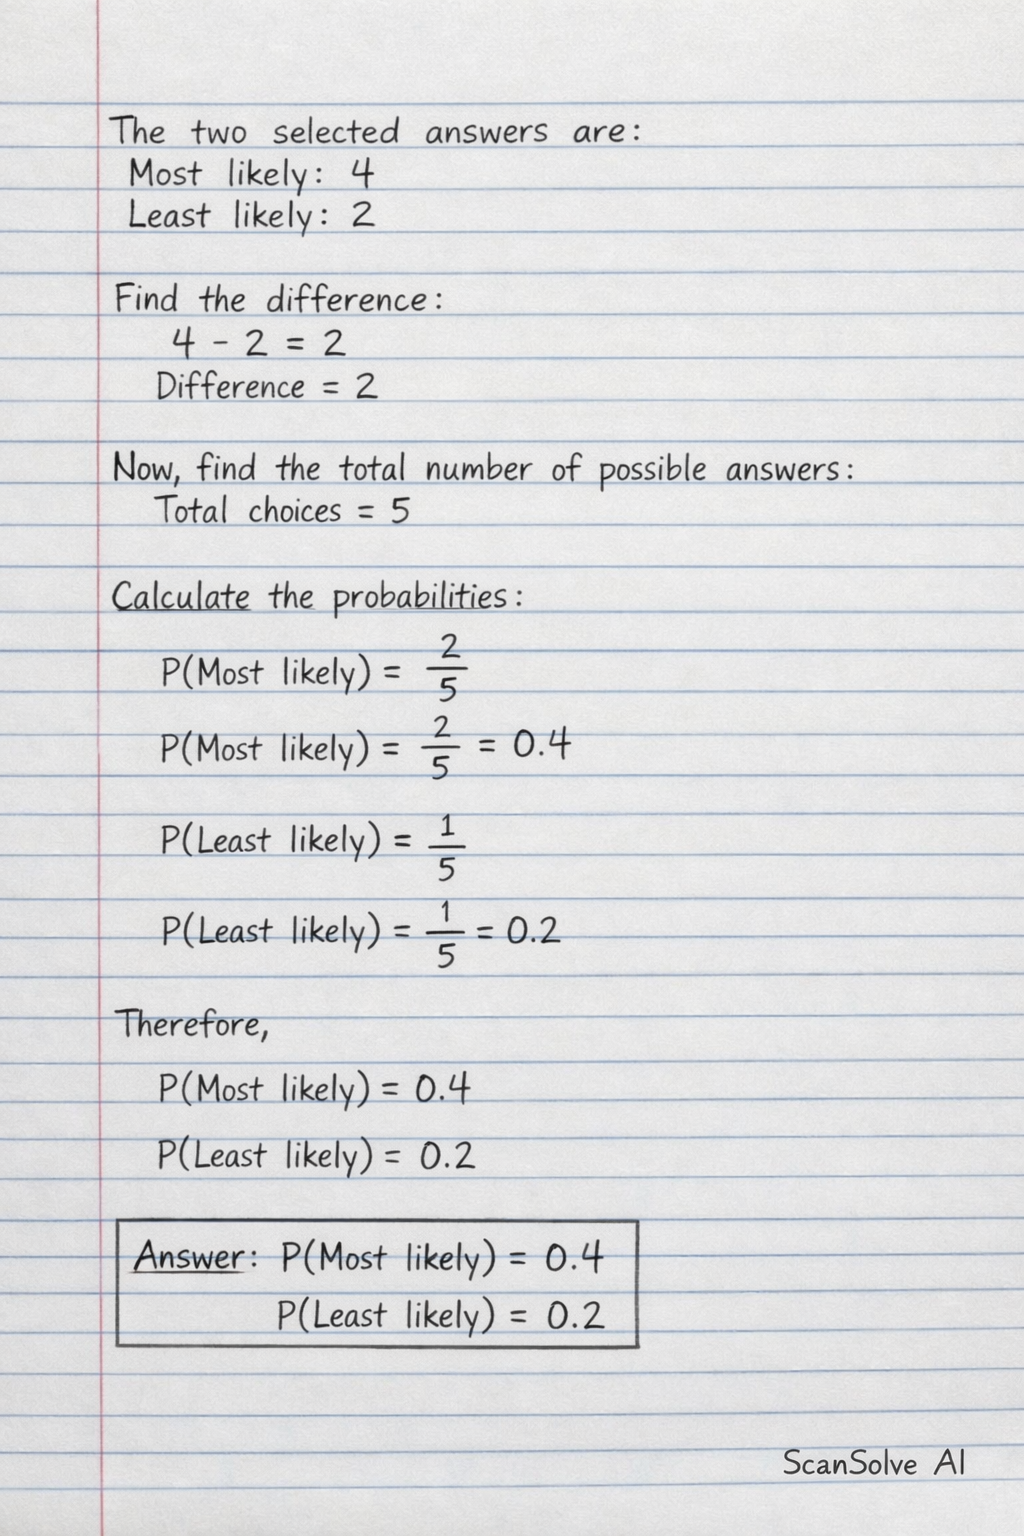 The two selected answers are:
Most likely: 4
Least likely: 2
Find the difference:
4 - 2 = 2
Difference = 2
Now, find the total number of possible answers:
Total choices = 5
Calculate the probabilities:
P(Most likely) = 2/5
P(Most likely) = 2/5 = 0.4
P(Least likely) = 1/5
P(Least likely) = 1/5 = 0.2
Therefore,
P(Most likely) = 0.4
P(Least likely) = 0.2
Answer: P(Most likely) = 0.4
P(Least likely) = 0.2
ScanSolve AI